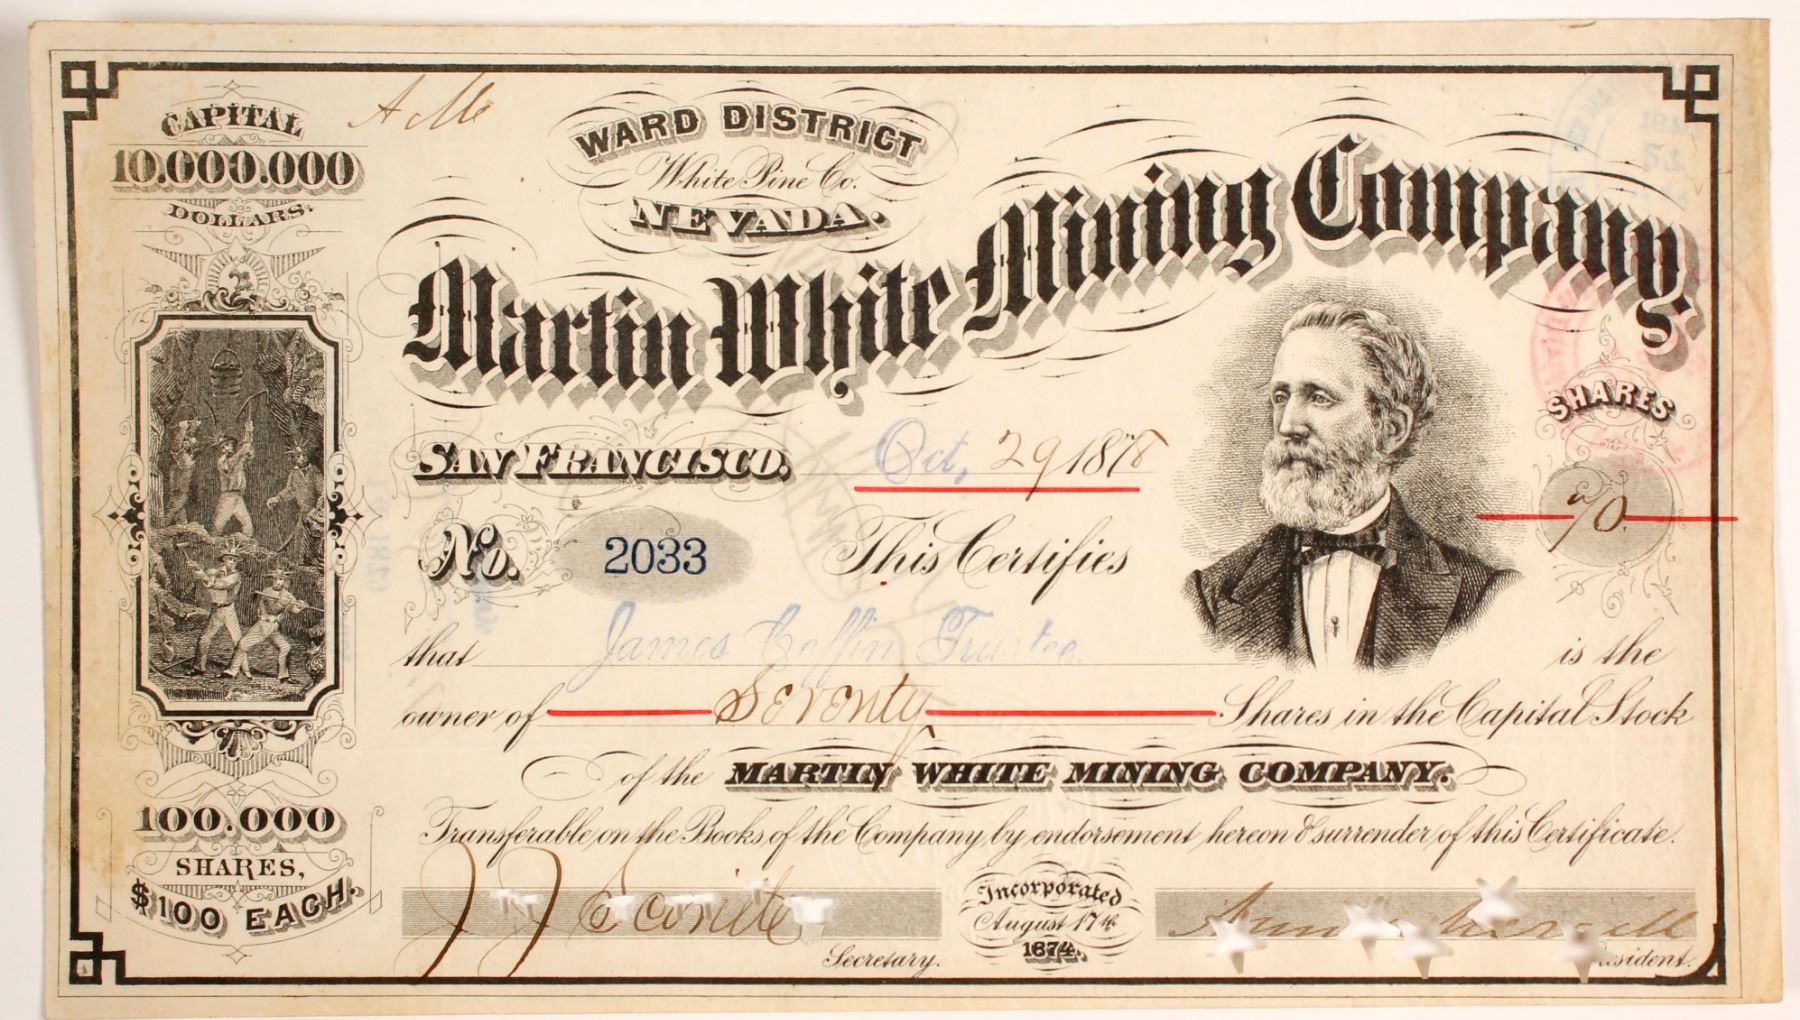 CAPITAL
10.000.000
DOLLARS.
WARD DISTRICT
White Pine Co.
NEVADA.
Martin White Mining Company.
SAN FRANCISCO. Oct, 29 1878
SHARES
70
No. 2033 This Certifies
that James Coffin Trustee is the
owner of Seventy Shares in the Capital Stock
of the MARTIN WHITE MINING COMPANY.
Transferable on the Books of the Company by endorsement hereon & surrender of this Certificate.
100.000
SHARES,
$100 EACH.
Incorporated
August 17th
1874.
J J Scoville
Secretary.
President.